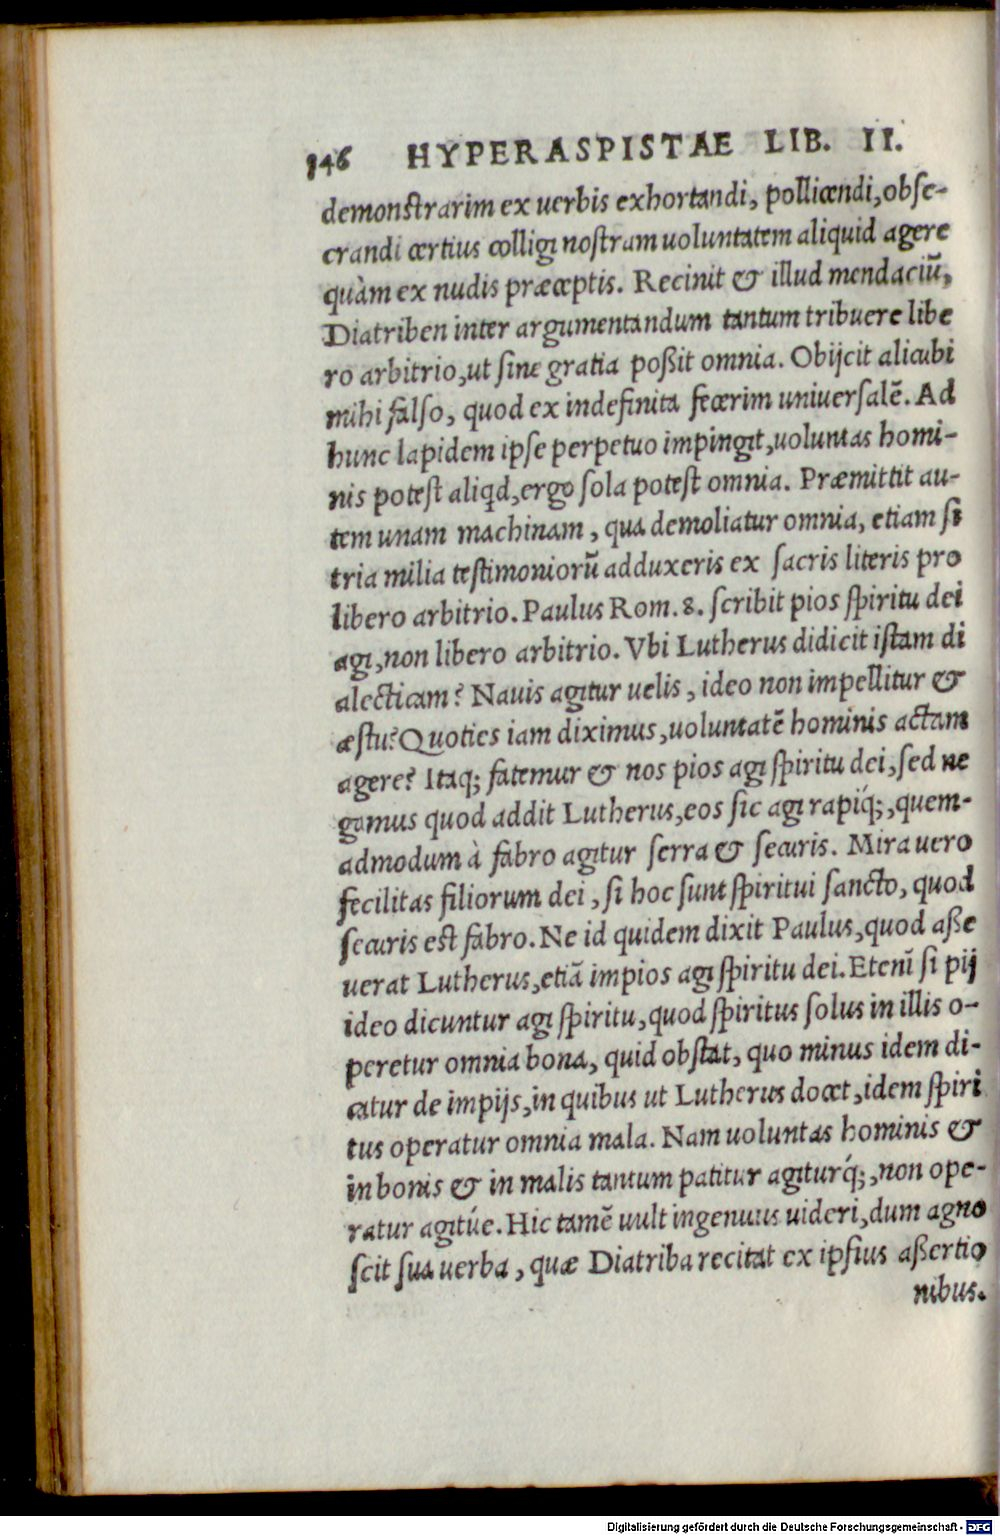 346 HYPERASPISTAE LIB. II.
demonstrarim ex uerbis exhortandi, pollicendi, obse-
crandi certius colligi nostram uoluntatem aliquid agere
quàm ex nudis præceptis. Recinit & illud mendaciũ,
Diatriben inter argumentandum tantum tribuere libe
ro arbitrio, ut sine gratia poßit omnia. Obijcit alicubi
mihi falso, quod ex indefinita fecerim uniuersalẽ. Ad
hunc lapidem ipse perpetuo impingit, uoluntas homi-
nis potest aliqd, ergo sola potest omnia. Præmittit au-
tem unam machinam, qua demoliatur omnia, etiam si
tria milia testimoniorũ adduxeris ex sacris literis pro
libero arbitrio. Paulus Rom. 8. scribit pios spiritu dei
agi, non libero arbitrio. Vbi Lutherus didicit istam di
alecticam? Nauis agitur uelis, ideo non impellitur &
æstu? Quoties iam diximus, uoluntatẽ hominis actam
agere? Itaq; fatemur & nos pios agi spiritu dei, sed ne
gamus quod addit Lutherus, eos sic agi rapiq́;, quem-
admodum à fabro agitur serra & securis. Mira uero
fecilitas filiorum dei, si hoc sunt spiritui sancto, quod
securis est fabro. Ne id quidem dixit Paulus, quod aße
uerat Lutherus, etiã impios agi spiritu dei. Etenĩ si pij
ideo dicuntur agi spiritu, quod spiritus solus in illis o-
peretur omnia bona, quid obstat, quo minus idem di-
catur de impijs, in quibus ut Lutherus docet, idem spiri
tus operatur omnia mala. Nam uoluntas hominis &
in bonis & in malis tantum patitur agiturq́;, non ope-
ratur agitúe. Hic tamẽ uult ingenuus uideri, dum agno
scit sua uerba, quæ Diatriba recitat ex ipsius aßertio
nibus.
Digitalisierung gefördert durch die Deutsche Forschungsgemeinschaft - DFG